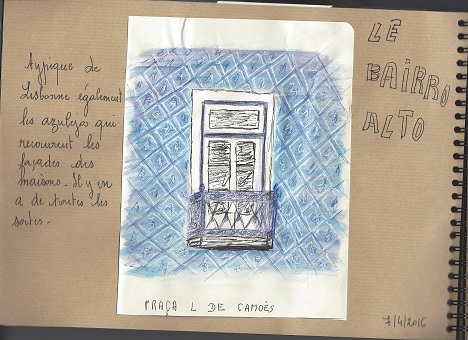 Typique de
Lisbonne également
les azulejos qui
recouvrent les
façades des
maisons - Il y en
a de toutes les
sortes -
PRAÇA L DE CAMOÈS
LE
BAiRRO
ALTO
7/4/2016